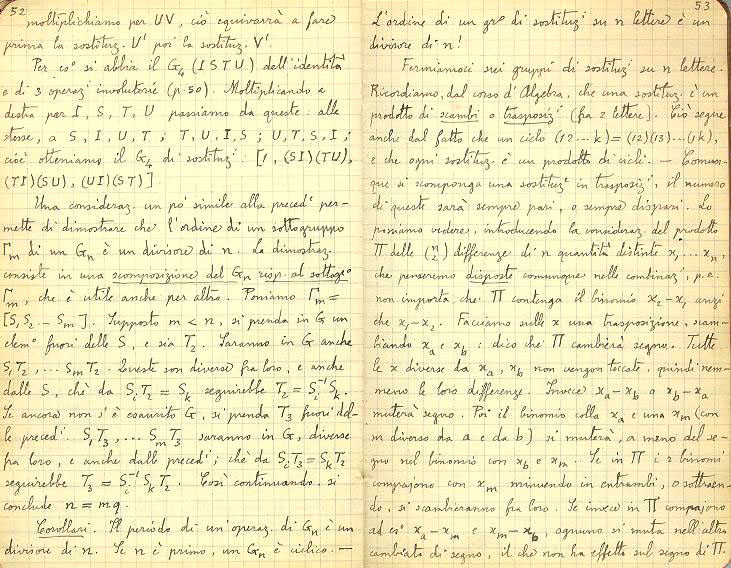 52
moltiplichiamo per UV, ciò equivarrà a fare
prima la sostituz. U' poi la sostituz. V'.
Per es° si abbia il G4 (I S T U) dell'identità
e di 3 operazi involutorie (p. 50). Moltiplicando a
destra per I, S, T, U passiamo da queste: alle
stesse, a S, I, U, T ; T, U, I, S ; U, T, S, I ;
cioè otteniamo il G4 di sostituzi [1, (SI)(TU),
(TI)(SU), (UI)(ST)].
Una consideraz. un po' simile alla precedi per-
mette di dimostrare che l'ordine di un sottogruppo
Γm di un Gn è un divisore di n. La dimostraz.
consiste in una scomposizione del Gn risp. al sottogro
Γm, che è utile anche per altro. Poniamo Γm =
[S1 S2 ... Sm]. Supposto m < n, si prenda in G un
elemo fuori delle S, e sia T2. Saranno in G anche
S1T2, ... SmT2. Queste son diverse fra loro, e anche
dalle S, chè da SiT2 = Sk seguirebbe T2 = Si⁻¹Sk.
Se ancora non s'è esaurito G, si prenda T3 fuori del-
le precedi. S1T3, ... SmT3 saranno in G, diverse
fra loro, e anche dalle precedi; chè da SiT3 = SkT2
seguirebbe T3 = Si⁻¹SkT2. Così continuando si
conclude n = mq.
Corollari. Il periodo di un'operaz. di Gn è un
divisore di n. Se n è primo, un Gn è ciclico. —
53
L'ordine di un gro di sostituzi su n lettere è un
divisore di n!
Fermiamoci sui gruppi di sostituzi su n lettere.
Ricordiamo, dal corso d'Algebra, che una sostituz. è un
prodotto di scambi o trasposizi (fra 2 lettere). Ciò segue
anche dal fatto che un ciclo (12...k) = (12)(13)...(1k),
e che ogni sostituz. è un prodotto di cicli. — Comun-
que si scomponga una sostituzi in trasposizi, il numero
di queste sarà sempre pari, o sempre dispari. Lo
possiamo vedere, introducendo la consideraz. del prodotto
Π delle (n 2) differenze di n quantità distinte x1 ... xn,
che penseremo disposte comunque nelle combinazi, p. e.
non importa che Π contenga il binomio x2-x1 anzi
che x1-x2. Facciamo sulle x una trasposizione, scam-
biando xa e xb : dico che Π cambierà segno. Tutte
le x diverse da xa, xb non vengon toccate, quindi nem-
meno le loro differenze. Invece xa-xb o xb-xa
muterà segno. Poi il binomio colla xa e una xm (con
m diverso da a e da b) si muterà, a meno del se-
gno nel binomio con xb e xm. Se in Π i 2 binomi
compajono con xm minuendo in entrambi, o sottraen-
do, si scambieranno fra loro. Se invece in Π compajono
ad es° xa-xm e xm-xb, ognuno si muta nell'altro
cambiato di segno, il che non ha effetto sul segno di Π.